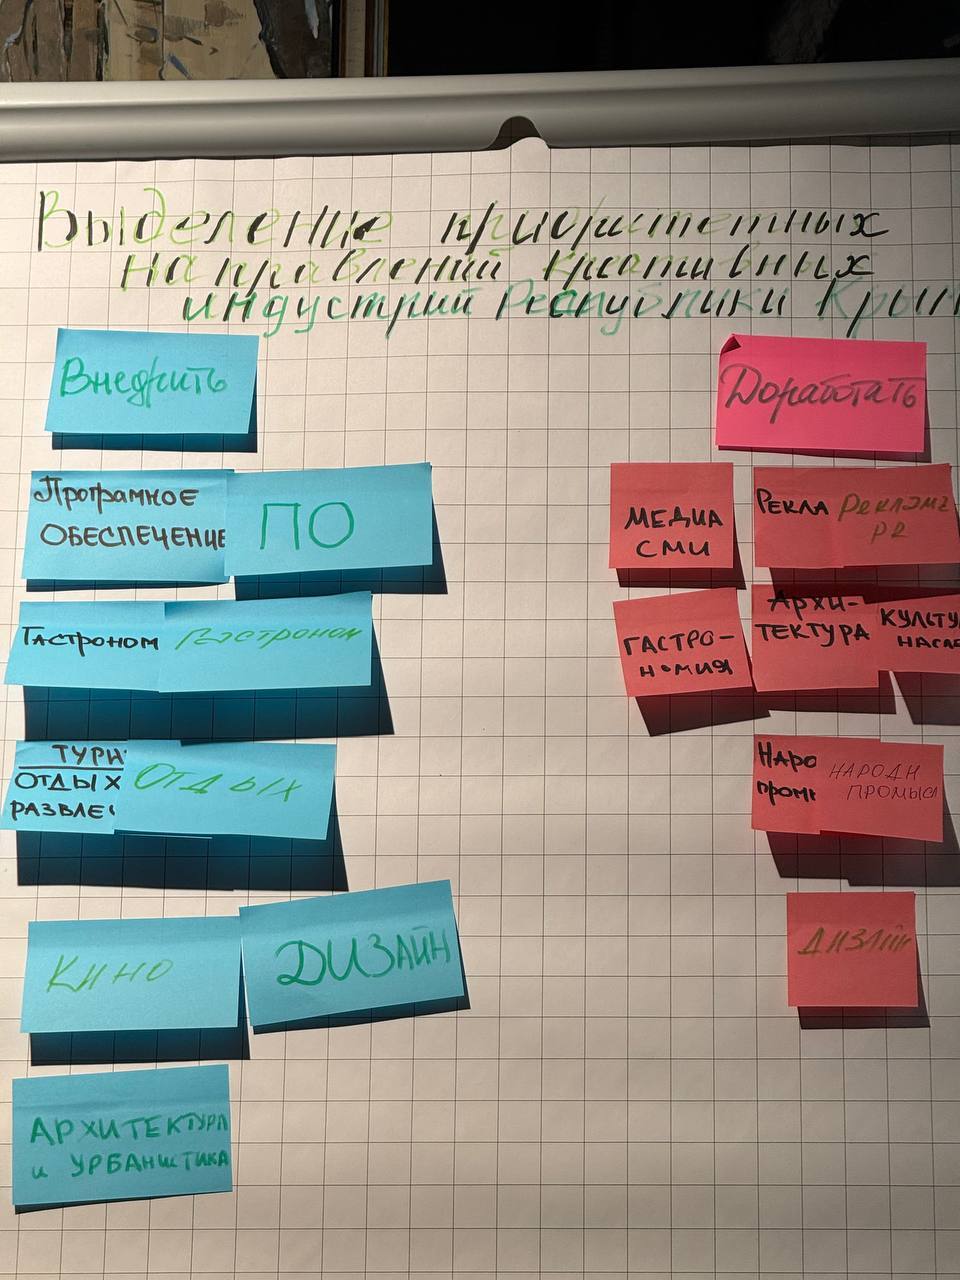 Выделение приоритетных
направлений креативных
индустрий Республики Крым
Внедрить
Програмное
ОБЕСПЕЧЕНИЕ
ПО
Гастроном
Гастроном
ТУРИ
ОТДЫХ
РАЗВЛЕ
ОТДЫХ
КИНО
ДИЗАЙН
АРХИТЕКТУРА
и УРБАНИСТИКА
Доработать
МЕДИА
СМИ
РЕКЛА
Реклама
PR
ГАСТРО-
НОМИЯ
АРХИ-
ТЕКТУРА
КУЛЬТУ
НАСЛЕ
НАРО
пром
НАРОДН
ПРОМЫСЛ
ДИЗАЙН